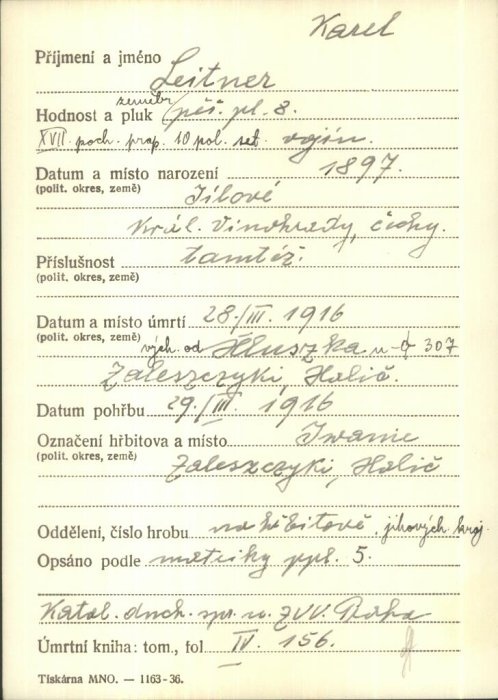 Karel
Příjmení a jméno Leitner
zeměbr.
Hodnost a pluk pěš. pl. 8.
XVII. poch. prap. 10 pol. set. vojín.
Datum a místo narození 1897.
(polit. okres, země) Jílové
Král. Vinohrady, Čechy.
Příslušnost tamtéž.
(polit. okres, země)
Datum a místo úmrtí 28./III. 1916
(polit. okres, země) vých. od Hluszka 307
Zaleszczyki, Halič.
Datum pohřbu 29./III. 1916
Označení hřbitova a místo Iwanie
(polit. okres, země) Zaleszczyki, Halič
Oddělení, číslo hrobu na hřbitově, jihových. kraj.
Opsáno podle matriky ppl. 5.
Katol. duch. spr. u ZVV. Praha
Úmrtní kniha: tom., fol IV. 156.
Tiskárna MNO. — 1163-36.